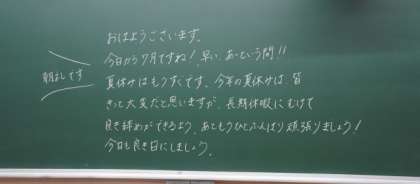 おはようございます。
今日から7月ですね！早い、あっという間!!
朝礼です
夏休みはもうすぐです。今年の夏休みは、皆
きっと大変だと思いますが、長期休暇にむけて
良き締めができるよう、あともうひとふんばり頑張りましょう！
今日も良き日にしましょう。